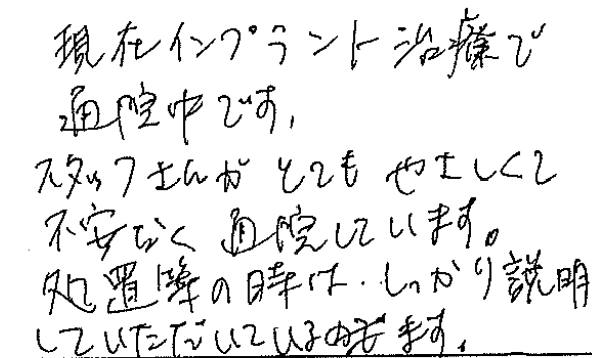 現在インプラント治療で
通院中です。
スタッフさんが とても やさしくて
不安なく 通院しています。
処置等の時は、しっかり説明
していただいている ます。